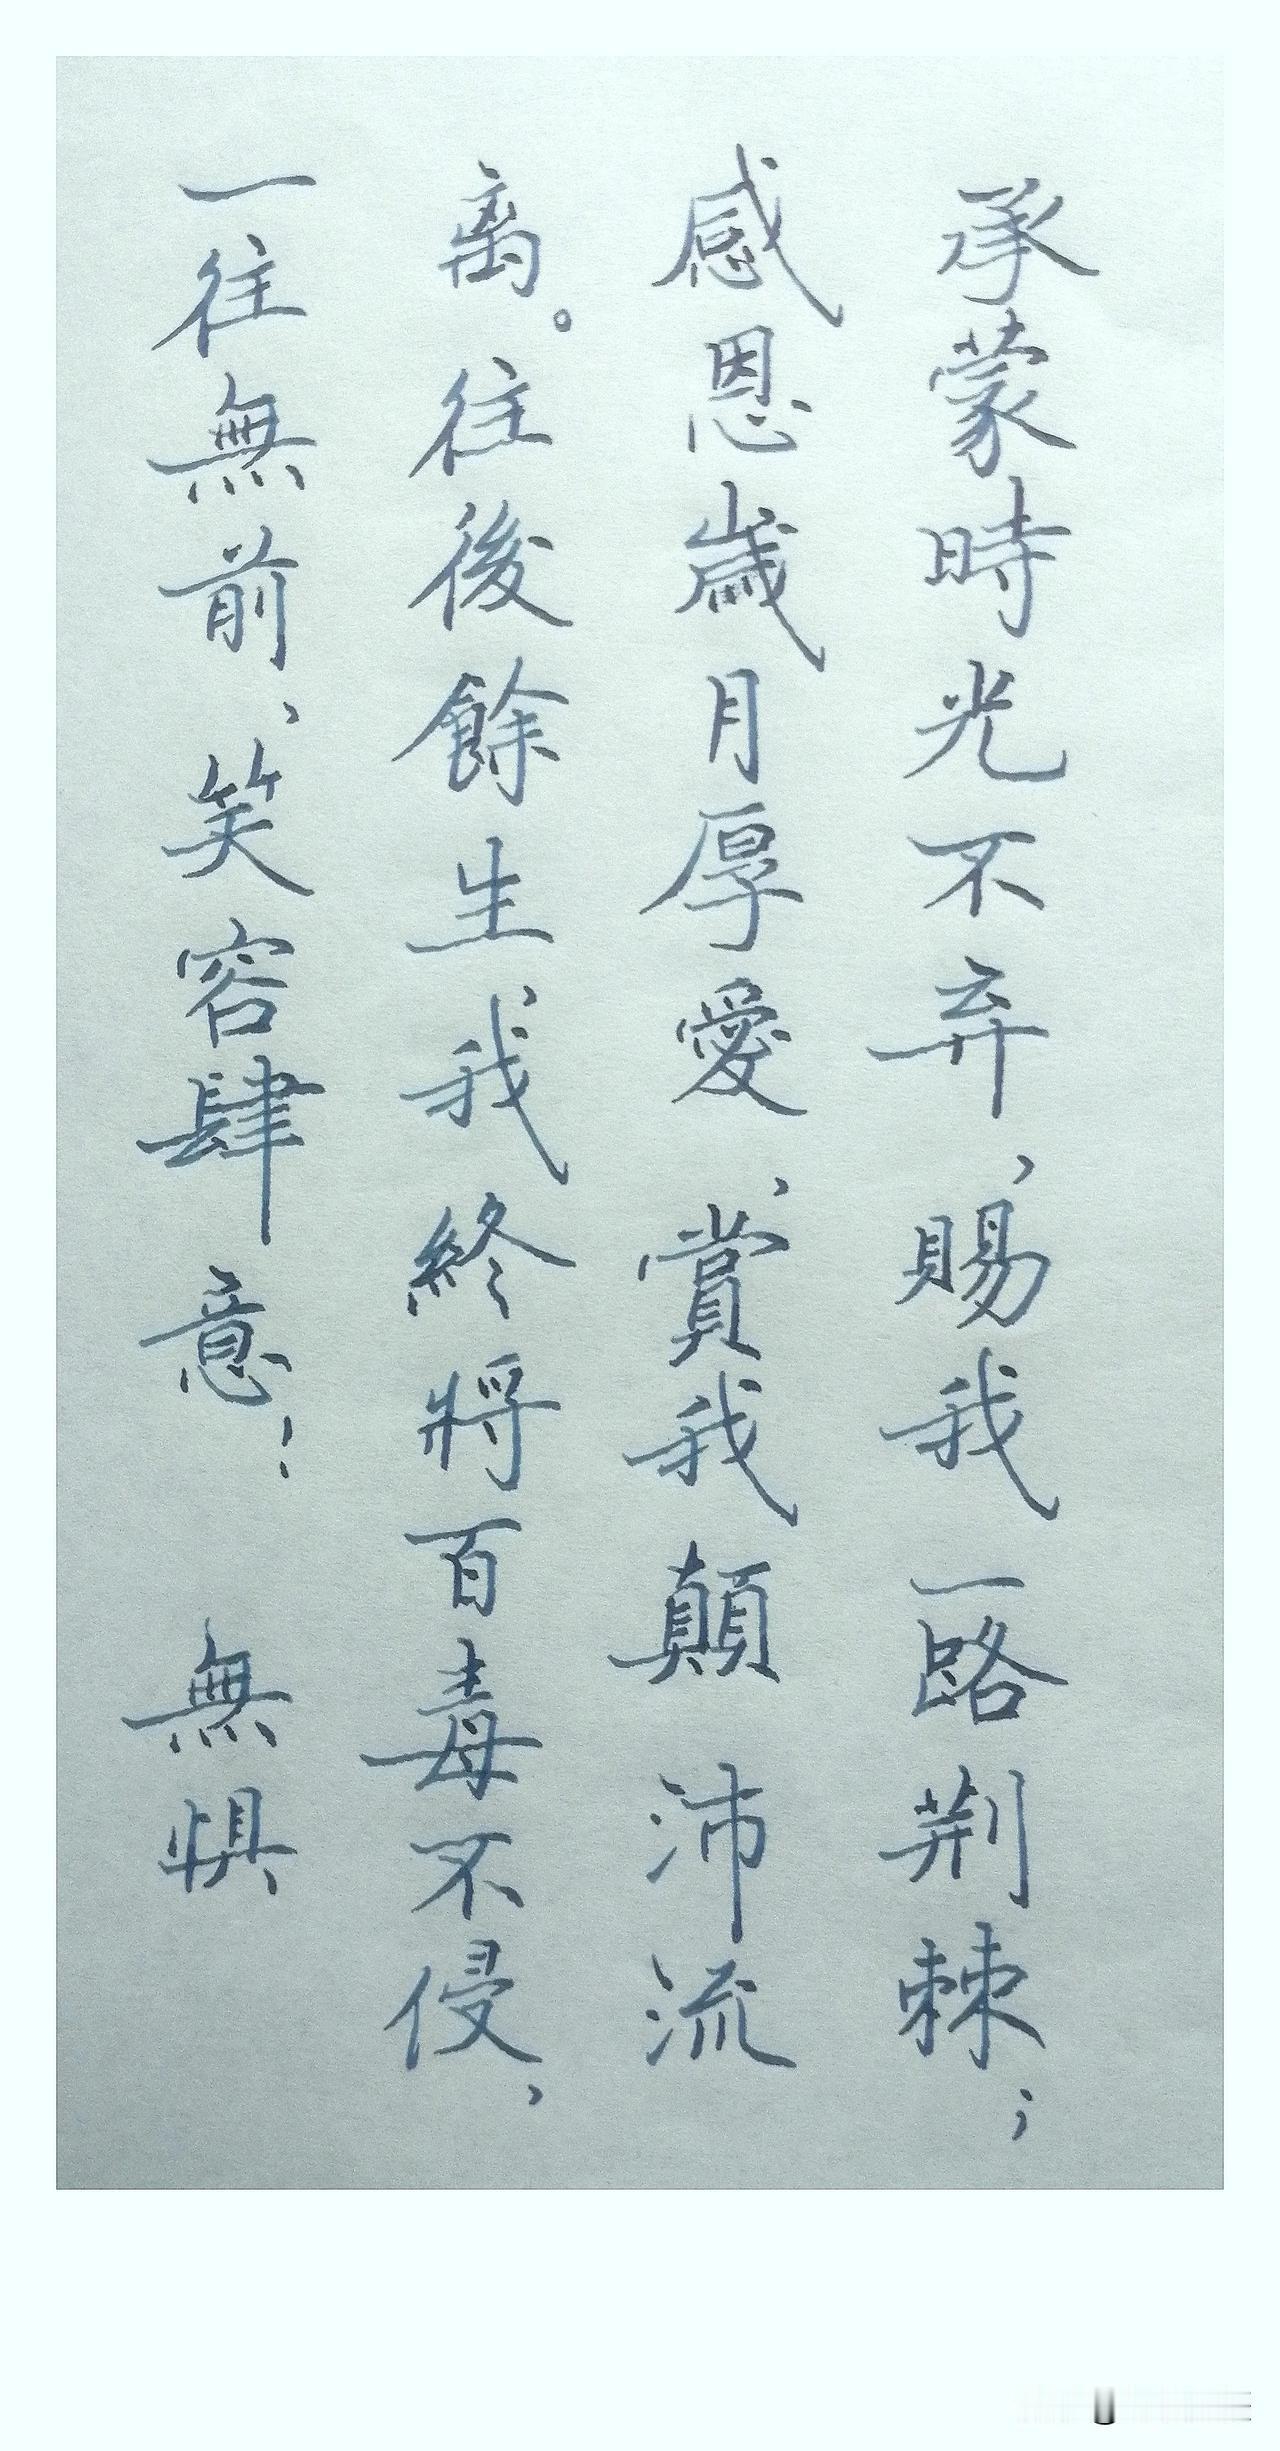 承蒙時光不弃，賜我一路荆棘；
感恩歲月厚愛，賞我顛沛流
离。往後餘生我終將百毒不侵，
一往無前，笑容肆意！ 無惧